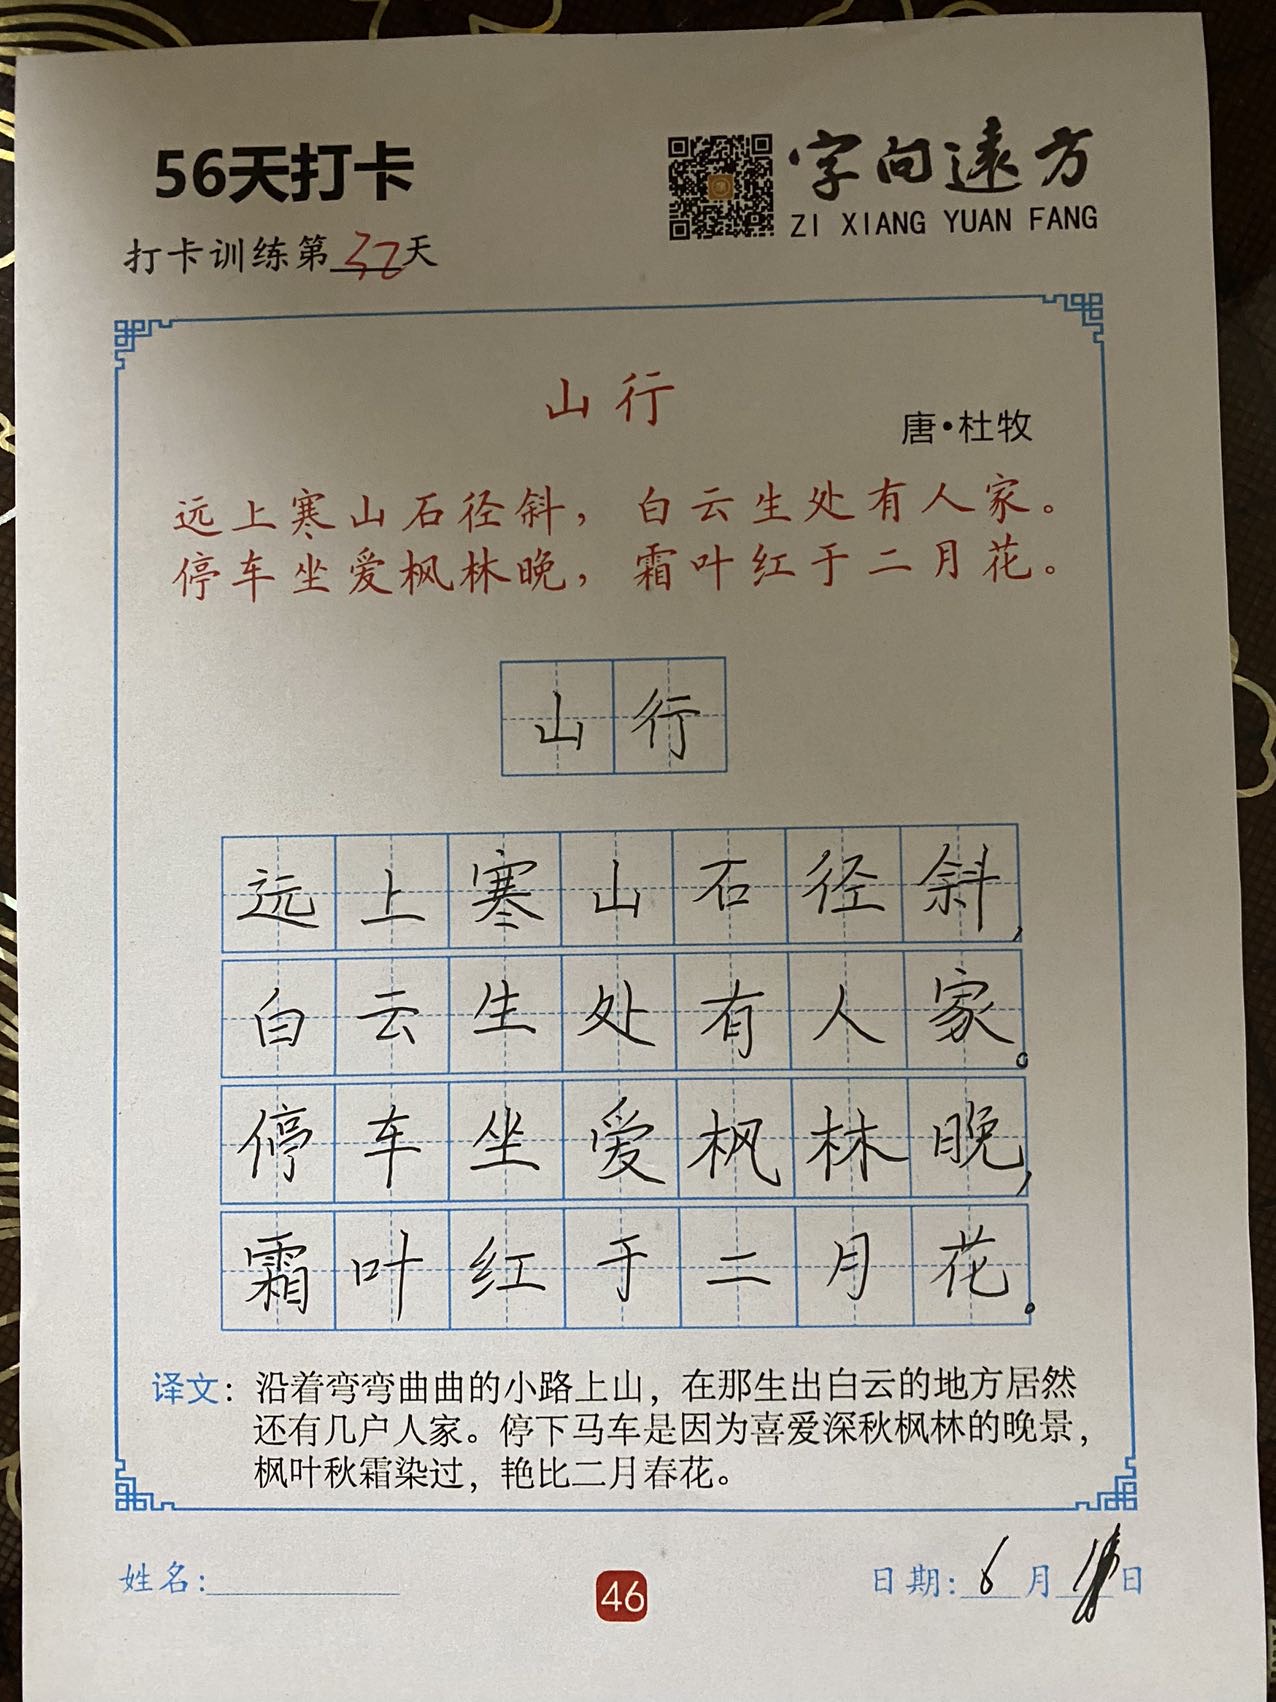 56天打卡
字向遠方
ZI XIANG YUAN FANG
打卡训练第32天
山行
唐·杜牧
远上寒山石径斜，白云生处有人家。
停车坐爱枫林晚，霜叶红于二月花。
山行
远上寒山石径斜，
白云生处有人家。
停车坐爱枫林晚，
霜叶红于二月花。
译文：沿着弯弯曲曲的小路上山，在那生出白云的地方居然
还有几户人家。停下马车是因为喜爱深秋枫林的晚景，
枫叶秋霜染过，艳比二月春花。
姓名：
46
日期：6月 日